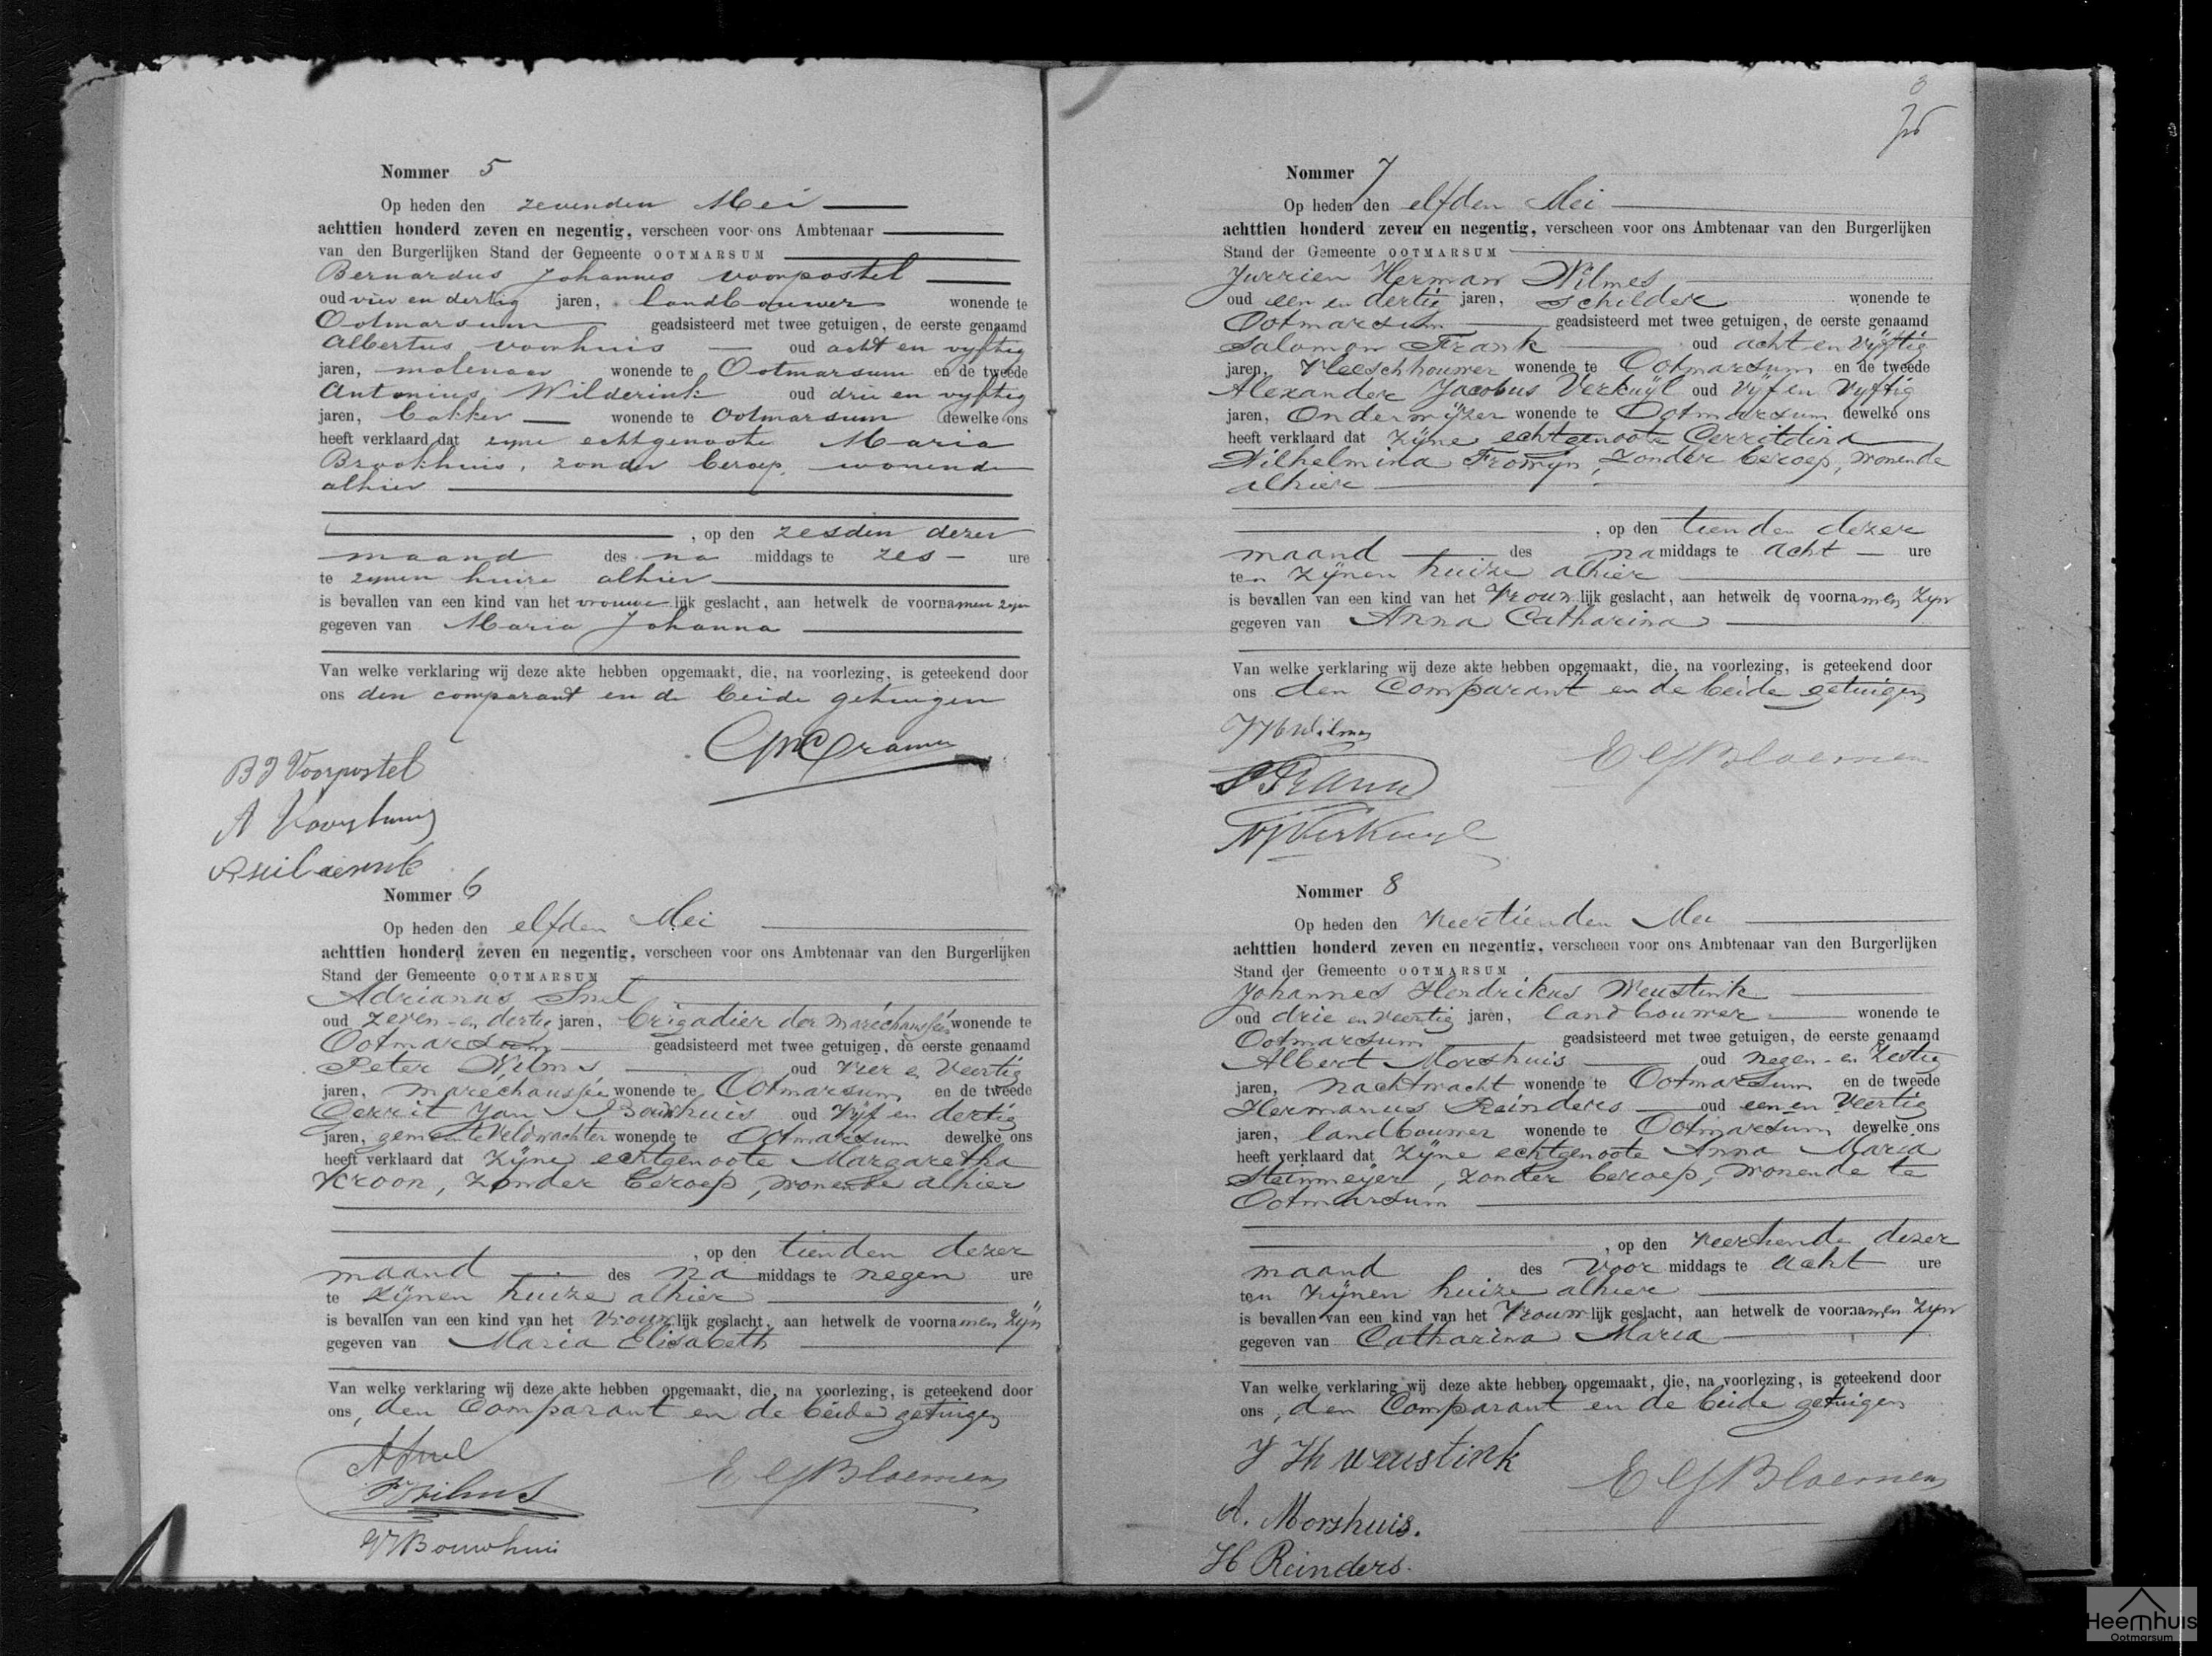 Nommer 5
Op heden den zevenden Mei
achttien honderd zeven en negentig, verscheen voor ons Ambtenaar
van den Burgerlijken Stand der Gemeente OOTMARSUM
Bernardus Johannes Voorpostel
oud vier en dertig jaren, landbouwer wonende te
Ootmarsum geadsisteerd met twee getuigen, de eerste genaamd
Albertus Voorhuis oud acht en vyftig
jaren, molenaar wonende te Ootmarsum en de tweede
Antonius Wilderink oud drie en vyftig
jaren, bakker wonende te Ootmarsum dewelke ons
heeft verklaard dat zyne echtgenoote Maria
Brookhuis, zonder beroep, wonende
alhier
, op den zesden dezer
maand des na middags te zes ure
te zynen huize alhier
is bevallen van een kind van het vrouwe lijk geslacht, aan hetwelk de voornamen zyn
gegeven van Maria Johanna
Van welke verklaring wij deze akte hebben opgemaakt, die, na voorlezing, is geteekend door
ons den comparant en de beide getuigen
Cramer
B J Voorpostel
A Voorhuis
Nommer 6
Op heden den elfden Mei
achttien honderd zeven en negentig, verscheen voor ons Ambtenaar van den Burgerlijken
Stand der Gemeente OOTMARSUM
Adrianus Snel
oud zeven en dertig jaren, brigadier der maréchaussée wonende te
Ootmarsum geadsisteerd met twee getuigen, de eerste genaamd
Peter Wilms oud vier en veertig
jaren, maréchaussée wonende te Ootmarsum en de tweede
Gerrit Jan Bouwhuis oud vijf en dertig
jaren, gemeenteveldwachter wonende te Ootmarsum dewelke ons
heeft verklaard dat zijne echtgenoote Margaretha
Kroon, zonder beroep, wonende alhier
, op den tienden dezer
maand des na middags te negen ure
te zijnen huize alhier
is bevallen van een kind van het vrouw lijk geslacht, aan hetwelk de voornamen zijn
gegeven van Maria Elisabeth
Van welke verklaring wij deze akte hebben opgemaakt, die, na voorlezing, is geteekend door
ons, den Comparant en de beide getuigen
A Snel
P Wilms
E Bloemen
GJ Bouwhuis
3
Nommer 7
Op heden den elfden Mei
achttien honderd zeven en negentig, verscheen voor ons Ambtenaar van den Burgerlijken
Stand der Gemeente OOTMARSUM
Jurrien Herman Wilmes
oud een en dertig jaren, schilder wonende te
Ootmarsum geadsisteerd met twee getuigen, de eerste genaamd
Salomon Frank oud acht en vijftig
jaren, vleeschhouwer wonende te Ootmarsum en de tweede
Alexander Jacobus Verkuijl oud vijf en vijftig
jaren, onderwijzer wonende te Ootmarsum dewelke ons
heeft verklaard dat zijne echtgenoote Gerritdina
Wilhelmina Fromijn, zonder beroep, wonende
alhier
, op den tienden dezer
maand des na middags te acht ure
ten zijnen huize alhier
is bevallen van een kind van het vrouw lijk geslacht, aan hetwelk de voornamen zijn
gegeven van Anna Catharina
Van welke verklaring wij deze akte hebben opgemaakt, die, na voorlezing, is geteekend door
ons den Comparant en de beide getuigen
JH Wilmes
S Frank
AJ Verkuyl
E Bloemen
Nommer 8
Op heden den veertienden Mei
achttien honderd zeven en negentig, verscheen voor ons Ambtenaar van den Burgerlijken
Stand der Gemeente OOTMARSUM
Johannes Hendrikus Weustink
oud drie en veertig jaren, landbouwer wonende te
Ootmarsum geadsisteerd met twee getuigen, de eerste genaamd
Albert Morshuis oud negen en zestig
jaren, nachtwacht wonende te Ootmarsum en de tweede
Hermanus Reinders oud een en veertig
jaren, landbouwer wonende te Ootmarsum dewelke ons
heeft verklaard dat zijne echtgenoote Anna Maria
Steinmeijer, zonder beroep, wonende te
Ootmarsum
, op den veertiende dezer
maand des voor middags te acht ure
ten zijnen huize alhier
is bevallen van een kind van het vrouw lijk geslacht, aan hetwelk de voornamen zyn
gegeven van Catharina Maria
Van welke verklaring wij deze akte hebben opgemaakt, die, na voorlezing, is geteekend door
ons, den Comparant en de beide getuigen
J H Weustink
E Bloemen
A. Morshuis.
H Reinders.
Heemhuis
Ootmarsum